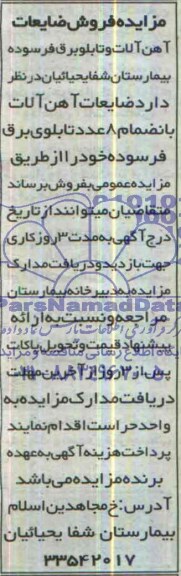 مزایده فروش ضایعات
آهن آلات و تابلو برق فرسوده
بیمارستان شفا یحیائیان در نظر
دارد ضایعات آهن آلات
بانضمام ۸ عدد تابلوی برق
فرسوده خود را از طریق
مزایده عمومی بفروش برساند
متقاضیان میتوانند از تاریخ
درج آگهی به مدت ۳ روز کاری
جهت بازدید و دریافت مدارک
مزایده به دبیرخانه بیمارستان
مراجعه و نسبت به ارائه
پیشنهاد قیمت و تحویل پاکات
پس از ۳ روز از آخرین مهلت
دریافت مدارک مزایده به
واحد حراست اقدام نمایند
پرداخت هزینه آگهی به عهده
برنده مزایده می باشد
آدرس: خ مجاهدین اسلام
بیمارستان شفا یحیائیان
۳۳۵۴۲۰۱۷
ParsNamadData